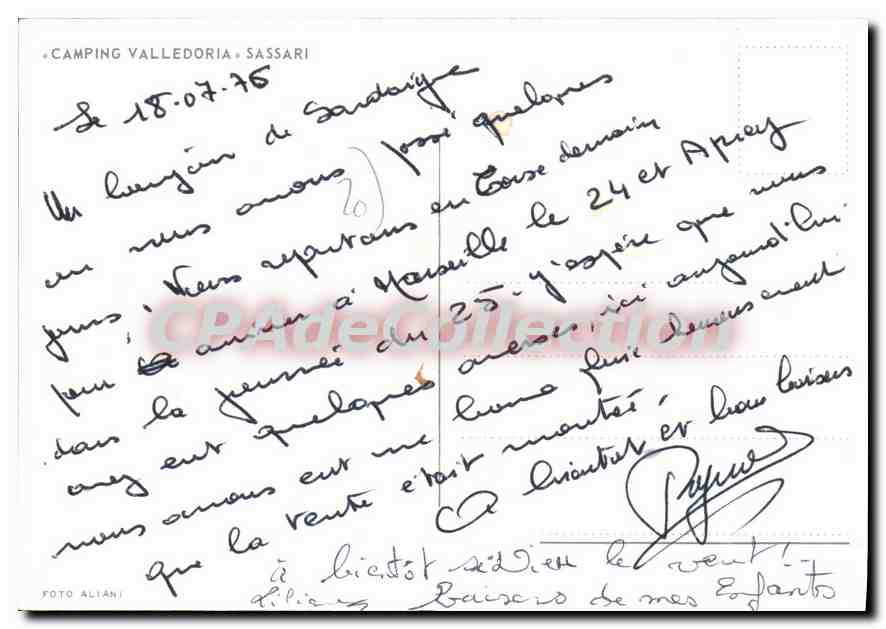 "CAMPING VALLEDORIA" SASSARI
Le 18.07.76
Un bonjour de Sardaigne
ou nous avons passé quelques
jours, Nous repartons en Corse demain
pour arriver à Marseille le 24 et Aprey
dans la journée du 25. j'espère que vous
avez eut quelques averses, ici aujourd'hui
nous avons eut une bonne pluie heureusement
que la tente était montée.
A bientôt et bons baisers
20
à bientôt si Dieu le veut!--
Liliane Baisers de mes Enfants
FOTO ALIANI
CPAdeCollection